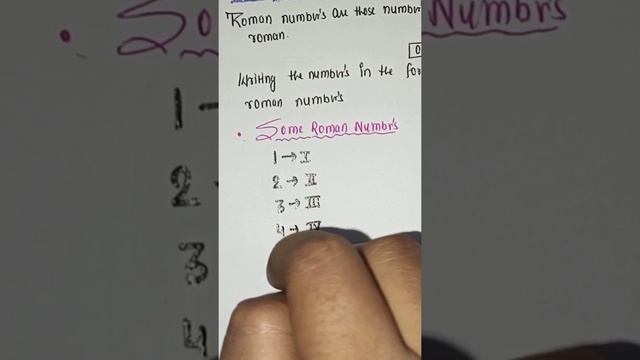 Roman numbr's are those numbr
roman.
Writing the numbr's in the for
roman numbr's
• Some Roman Numbr's
1 → I
2 → II
3 → III
4 → IV